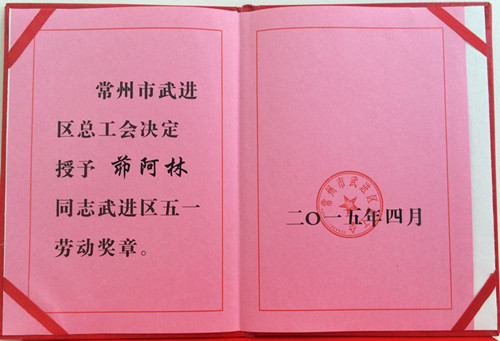 常州市武进
区总工会决定
授予 茆阿林
同志武进区五一
劳动奖章。
常州市武进区
二〇一五年四月